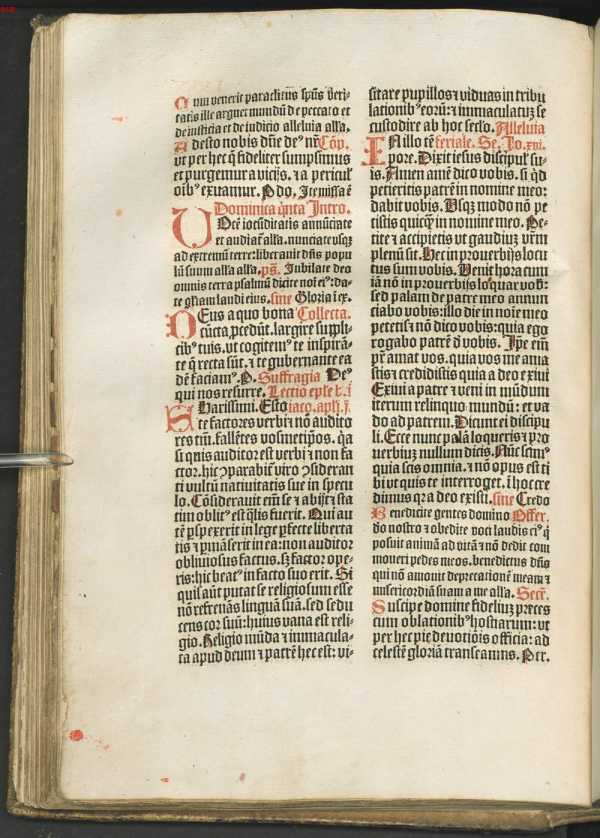 Cum venerit paraclitus spūs veri-
tatis ille arguet mundū de peccato et
de iusticia et de iudicio alleluia alľa.
Adesto nobis dn̄e deꝰ nr̄ Cōp.
vt per hec q̄ fideliter sumpsimus
et purgemur a vicijs. ⁊ a pericul'
oībꝰ exuamur. P dn̄o. Ite missa ē
Dominica q̄nta Intro.
VOcē iocūditatis annūciate
et audiat̄ alľa. nunciate vsqꝫ
ad extremū terre: liberauit dn̄s popu
lū suum alľa alľa. pš. Jubilate deo
omnis terra psalmū dicite noī eiꝰ: da-
te gľiam laudi eius. sine Gloria ī ex.
DEus a quo bona Collecta.
cūcta ꝓcedūt. largire suppli-
cibꝰ tuis. vt cogitemꝰ te inspirā-
te q̄ recta sūt. ⁊ te gubernante ea
dē faciamꝰ. P. Suffragia Deꝰ
qui nos resurre. Lectio ep̄le b. ī
Charissimi. Esto iaco. apľi. j.
te factores verbi ⁊ nō audito
res tm̄. fallētes vosmetipōs. q̇a
si quis auditor est verbi ⁊ non fa
ctor. hic ꝯparabit̄ viro ꝯsideran
ti vultū natiuitatis sue in specu
lo. Cōsiderauit em̄ se ⁊ abijt ⁊ sta
tim oblitꝰ est q̄lis fuerit. Qui au
tē ꝑspexerit in lege ꝑfecte liberta
tis ⁊ ꝑmāserit in ea: non auditor
obliuiosus factus. sꝫ factor ope-
ris: hic beatꝰ in facto suo erit. Si
quis aūt putat se religiosum esse
nō refrenās linguā suā. sed sedu
cens cor suū: huius vana est reli-
gio. Religio mūda ⁊ immacula-
ta apud deum ⁊ patrē hec est: vi-
sitare pupillos ⁊ viduas in tribu
lationibꝰ eorū: ⁊ immaculatuꝫ se
custodire ab hoc secľo. Alleluia
IN illo tē feriale. Se. Jo. xvi.
pore. Dixit iesus discipul' su-
is. Amen amē dico vobis. si q̇d
petieritis patrē in nomine meo:
dabit vobis. Vsqꝫ modo nō pe
tistis quicq̄ in nomine meo. Pe-
tite ⁊ accipietis vt gaudiuꝫ vr̄m
plenū sit. Hec in prouerbijs locu
tus sum vobis. Venit hora cum
iā nō in prouerbijs loquar vob:
sed palam de patre meo annun
ciabo vobis: illo die in noīe meo
petetis: ⁊ nō dico vobis: quia ego
rogabo patrē d̄ vobis. Ip̄e em̄
pr̄ amat vos. quia vos me ama
stis ⁊ credidistis quia a deo exiui
Exiui a patre ⁊ veni in mūdum
iterum relinquo mundū: et va
do ad patrem. Dicunt ei discipu
li. Ecce nunc palā loqueris: ⁊ pro
verbiuꝫ nullum dicis. Nūc scimꝰ
quia scis omnia. ⁊ nō opus est ti
bi vt quis te interroget. ī hoc cre
dimus q̇a a deo existi. sine Credo
Benedicite gentes domino Offer.
dn̄m nostro ⁊ obedite voci laudis eiꝰ q̇
posuit animā ad vitā ⁊ nō dedit com
moueri pedes meos. benedictus dn̄s
qui nō amouit deprecationē meam ⁊
misericordiā suam a me alľa. Secr̄.
Suscipe domine fideliuꝫ preces
cum oblationibꝰ hostiarum: vt
per hec pie deuotiōis officia: ad
celestē gloriā transeamus. Per.